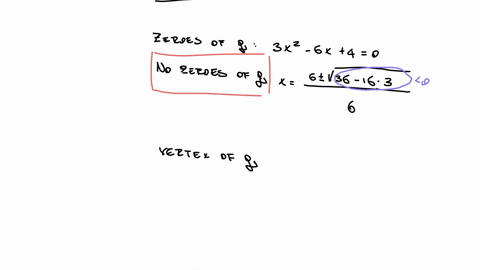 ZEROES OF g: 3x² - 6x + 4 = 0
NO ZEROES OF g x = (6 ± √(36 - 16·3)) / 6 < 0
VERTEX OF g